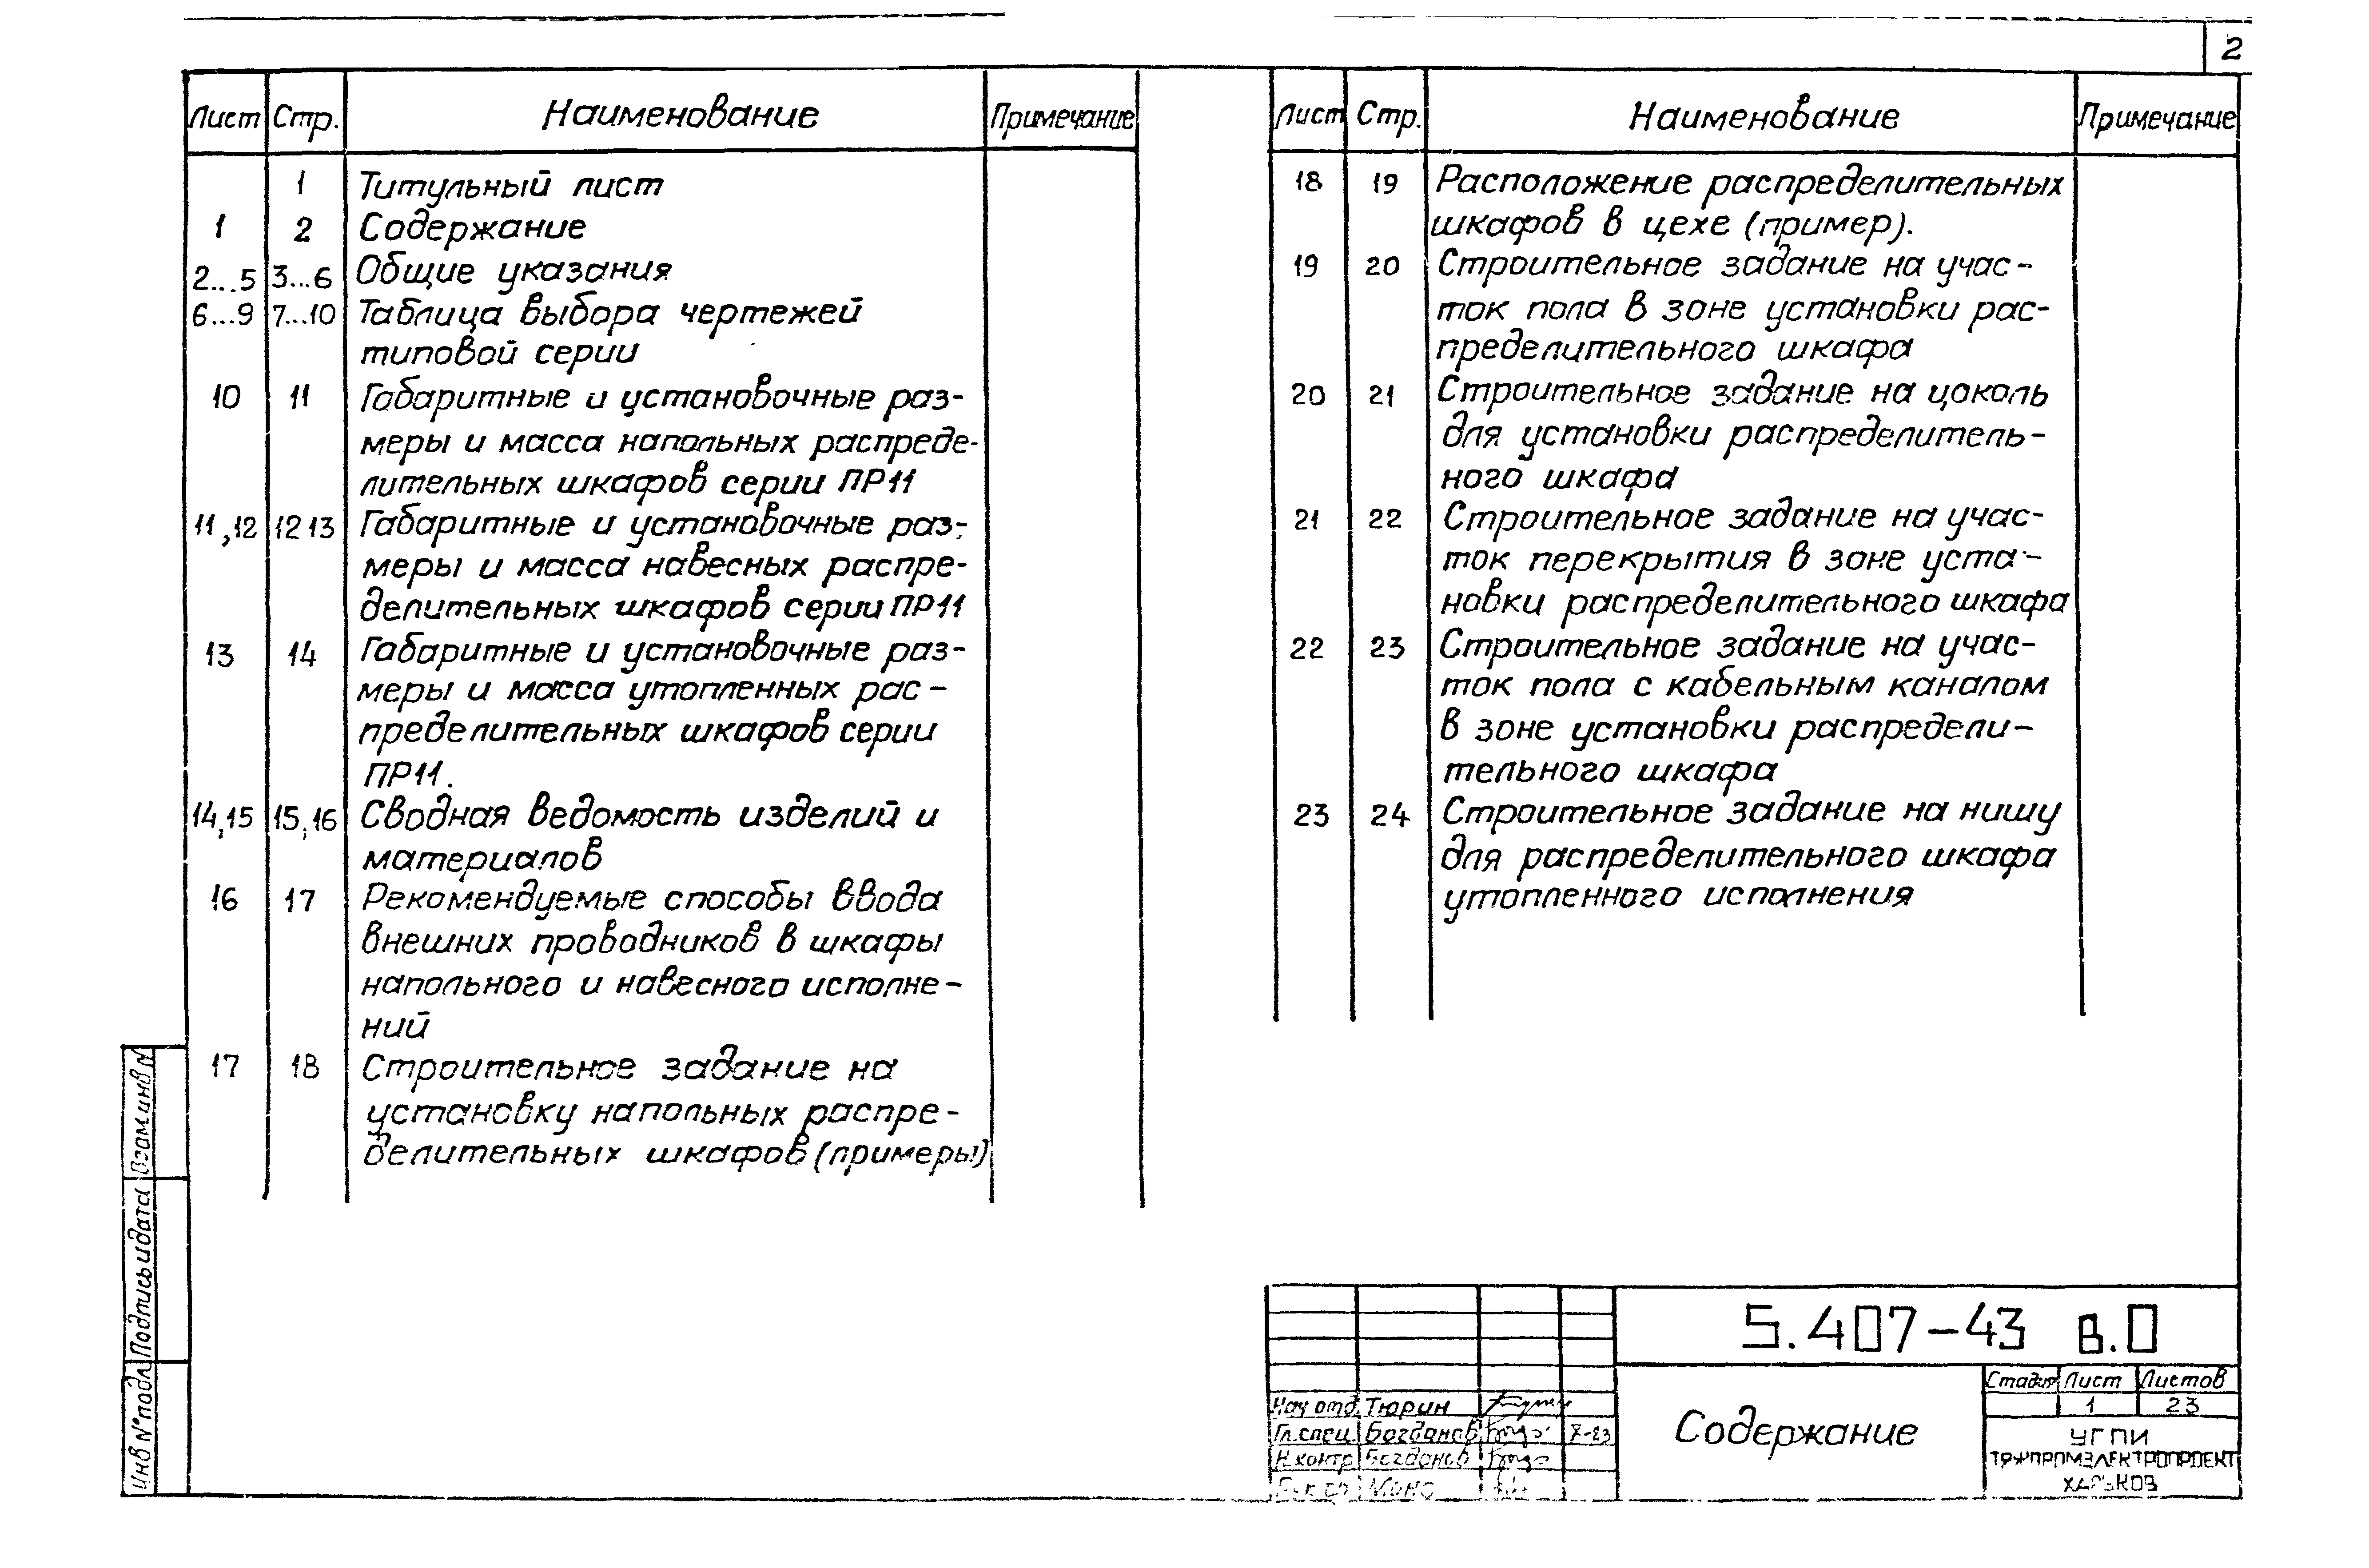 2
Лист Стр. Наименование Примечание
1 Титульный лист
1 2 Содержание
2...5 3...6 Общие указания
6...9 7...10 Таблица выбора чертежей
типовой серии
10 11 Габаритные и установочные раз-
меры и масса напольных распреде-
лительных шкафов серии ПР11
11,12 12 13 Габаритные и установочные раз-
меры и масса навесных распре-
делительных шкафов серии ПР11
13 14 Габаритные и установочные раз-
меры и масса утопленных рас-
пределительных шкафов серии
ПР11.
14,15 15,16 Сводная ведомость изделий и
материалов
16 17 Рекомендуемые способы ввода
внешних проводников в шкафы
напольного и навесного исполне-
ний
17 18 Строительное задание на
установку напольных распре-
делительных шкафов (примеры)
Лист Стр. Наименование Примечание
18 19 Расположение распределительных
шкафов в цехе (пример).
19 20 Строительное задание на учас-
ток пола в зоне установки рас-
пределительного шкафа
20 21 Строительное задание на цоколь
для установки распределитель-
ного шкафа
21 22 Строительное задание на учас-
ток перекрытия в зоне уста-
новки распределительного шкафа
22 23 Строительное задание на учас-
ток пола с кабельным каналом
в зоне установки распредели-
тельного шкафа
23 24 Строительное задание на нишу
для распределительного шкафа
утопленного исполнения
Взам.инв N
Подпись и дата
Инв N° подл
5.407-43 в.0
Содержание
Стадия Лист Листов
1 23
УГПИ
ТЯЖПРОМЭЛЕКТРОПРОЕКТ
ХАРЬКОВ
Нач отд Тюрин
Гл.спец. Богданов
Н.контр Богданов